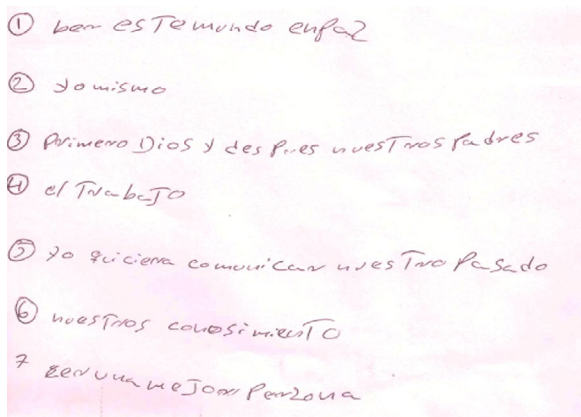 ① ber este mundo enpaz
② yo mismo
③ primero Dios y despues nuestros padres
④ el trabajo
⑤ yo quiciera comunicar nuestro pasado
⑥ nuestros conosimiento
7 zer una mejor perzona